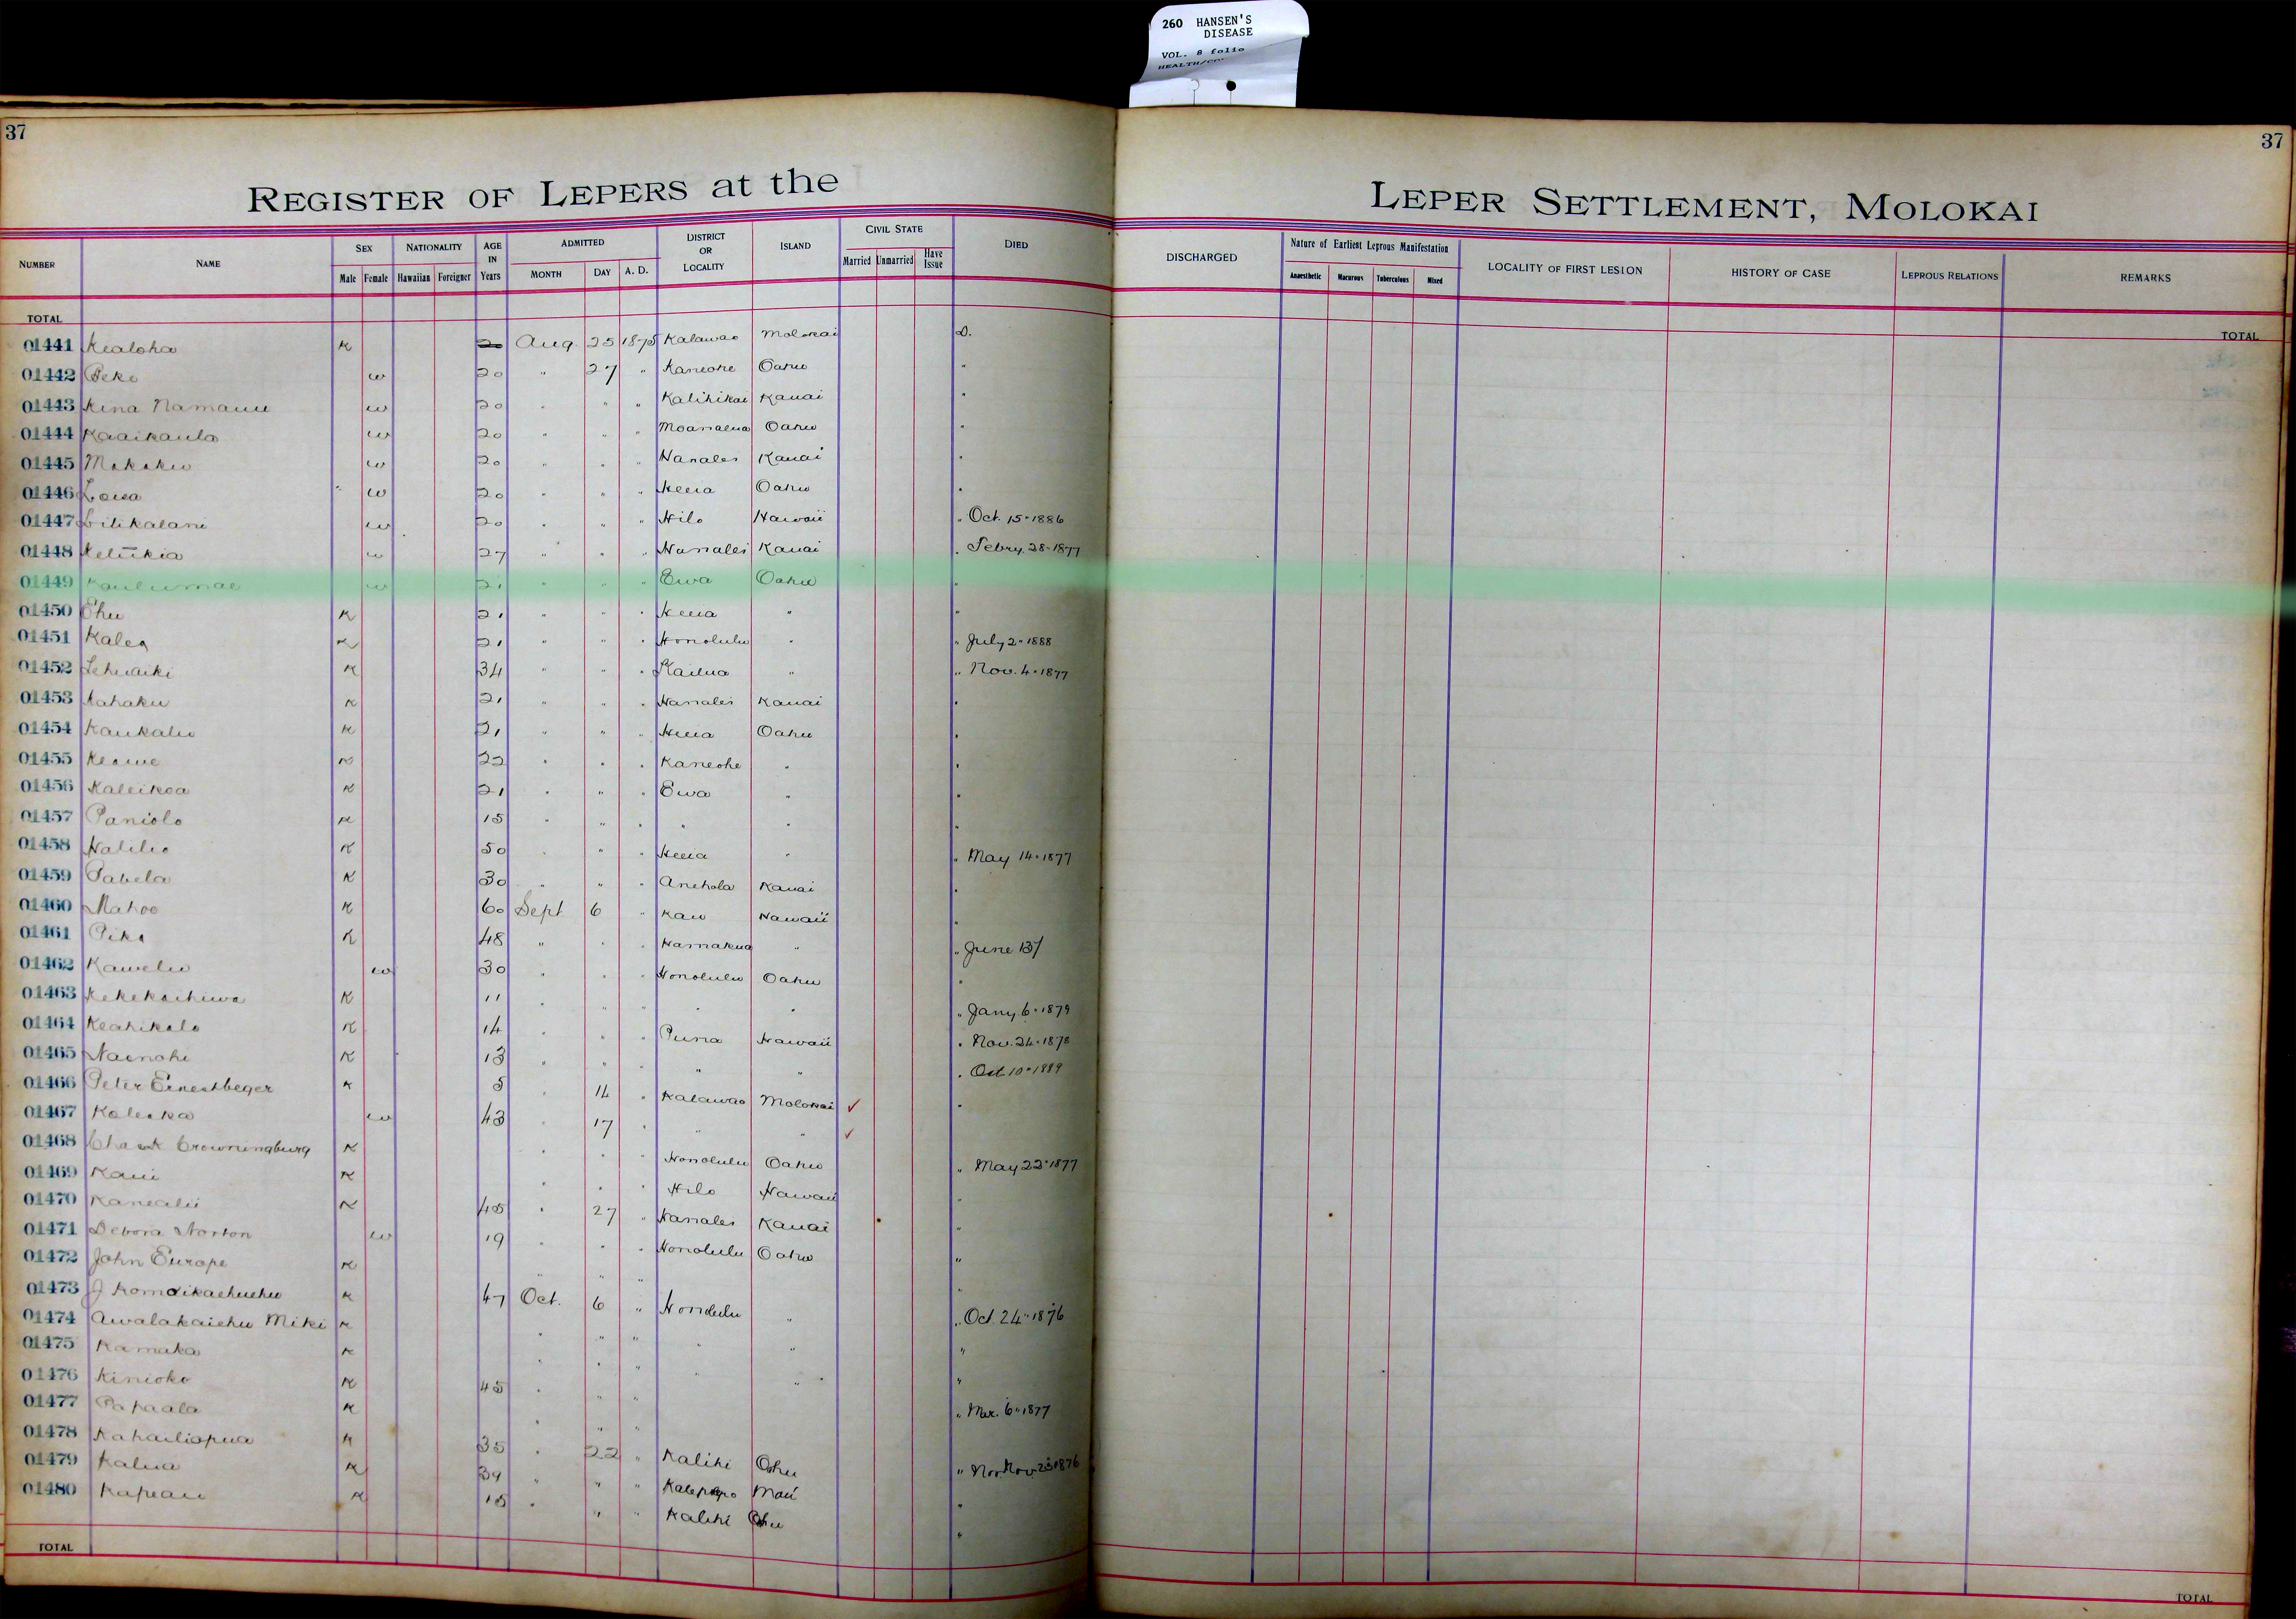 260 HANSEN'S
DISEASE
VOL. 8 folio
37 37
REGISTER OF LEPERS at the LEPER SETTLEMENT, MOLOKAI
NUMBER NAME SEX Male Female NATIONALITY Hawaiian Foreigner AGE IN Years ADMITTED MONTH DAY A. D. DISTRICT OR LOCALITY ISLAND CIVIL STATE Married Unmarried Have Issue DIED DISCHARGED Nature of Earliest Leprous Manifestation Anaesthetic Macurous Tuberculous Mixed LOCALITY OF FIRST LESION HISTORY OF CASE LEPROUS RELATIONS REMARKS
TOTAL TOTAL
01441 Kealoha K 20 Aug. 25 1875 Kalawao Molokai D.
01442 Peke w 20 " 27 " Kaneohe Oahu "
01443 Kina Namauu w 20 " " " Kalihikai Kauai "
01444 Kaaikaula w 20 " " " Moanalua Oahu "
01445 w 20 " " " Hanalei Kauai "
01446 w 20 " " " Heeia Oahu "
01447 Lilikalani w 20 " " " Hilo Hawaii " Oct. 15-1886
01448 w 27 " " " Hanalei Kauai " Febry. 28-1877
01449 w 21 " " " Ewa Oahu "
01450 Ehu K 21 " " " Heeia " "
01451 Kalea K 21 " " " Honolulu " " July 2-1888
01452 Lehuaiki K 34 " " " Kailua " " Nov. 4-1877
01453 Kahaku K 21 " " " Hanalei Kauai "
01454 Kaukaliu K 21 " " " Heeia Oahu "
01455 Keawe K 22 " " " Kaneohe " "
01456 Kaleikoa K 21 " " " Ewa " "
01457 Paniolo K 15 " " " " " "
01458 Halilio K 50 " " " Heeia " " May 14-1877
01459 Pabela K 30 " " " Anehola Kauai "
01460 Mahoe K 60 Sept 6 " Kau Hawaii "
01461 K 48 " " " Hamakua " " June 137
01462 Kawelu w 30 " " " Honolulu Oahu "
01463 Kekekaohiwa K 11 " " " " " " Jany. 6-1879
01464 Keahikolo K 14 " " " Puna Hawaii " Nov. 24-1878
01465 Naenohi K 13 " " " " " " Oct 10-1889
01466 Peter Ernestbeger K 5 " 14 " Kalawao Molokai ✓ "
01467 w 43 " 17 " " " ✓
01468 Crowningburg K " " " Honolulu Oahu " May 22-1877
01469 Kaui K " " " Hilo Hawaii "
01470 Kanealii K 45 " 27 " Hanalei Kauai "
01471 Debora Norton w 19 " " " Honolulu Oahu "
01472 John Europe K " " " "
01473 J K 47 Oct. 6 " Honolulu " " Oct. 24-1876
01474 Awalakaiehu Miki K " " " " " "
01475 Kamaka K " " " " " "
01476 Kinioko K 45 " " " " Mar. 6-1877
01477 Papaala K " " "
01478 Kahailiopua K 35 " 22 " Kalihi Oahu "
01479 Kalua K 34 " " " Maui "
01480 Kapeau K 15 " " " Kalihi Oahu "
TOTAL TOTAL